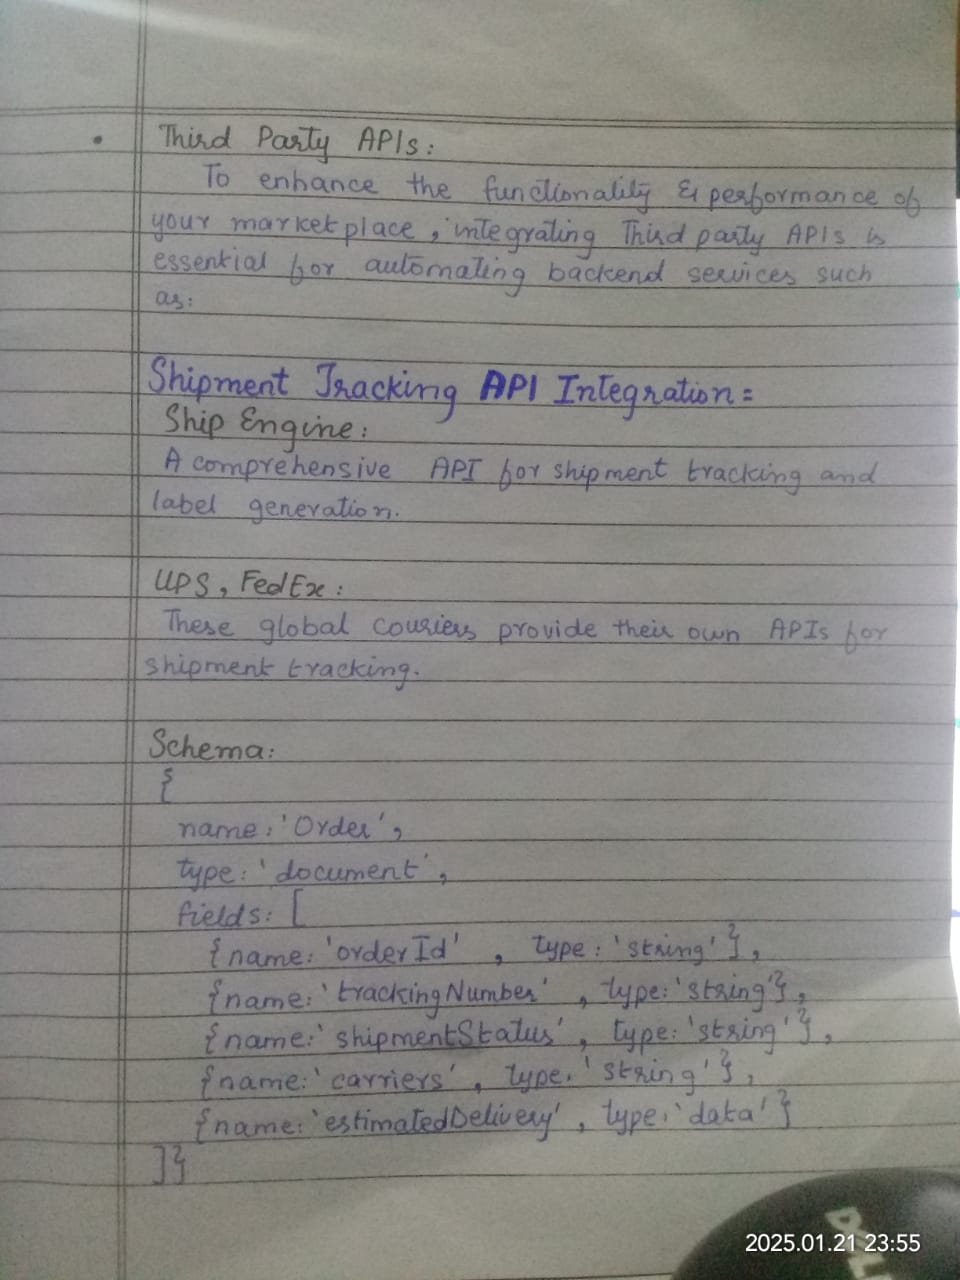 • Third Party APIs:
To enhance the functionality & performance of
your marketplace, integrating Third party APIs is
essential for automating backend services such
as:
Shipment Tracking API Integration:
Ship Engine:
A comprehensive API for shipment tracking and
label generation.
UPS, FedEx:
These global couriers provide their own APIs for
shipment tracking.
Schema:
{
name: 'Order',
type: 'document',
fields: [
{name: 'orderId', type: 'string'},
{name: 'trackingNumber', type: 'string'},
{name: 'shipmentStatus', type: 'string'},
{name: 'carriers', type: 'string'},
{name: 'estimatedDelivery', type: 'data'}
]}
DELL
2025.01.21 23:55